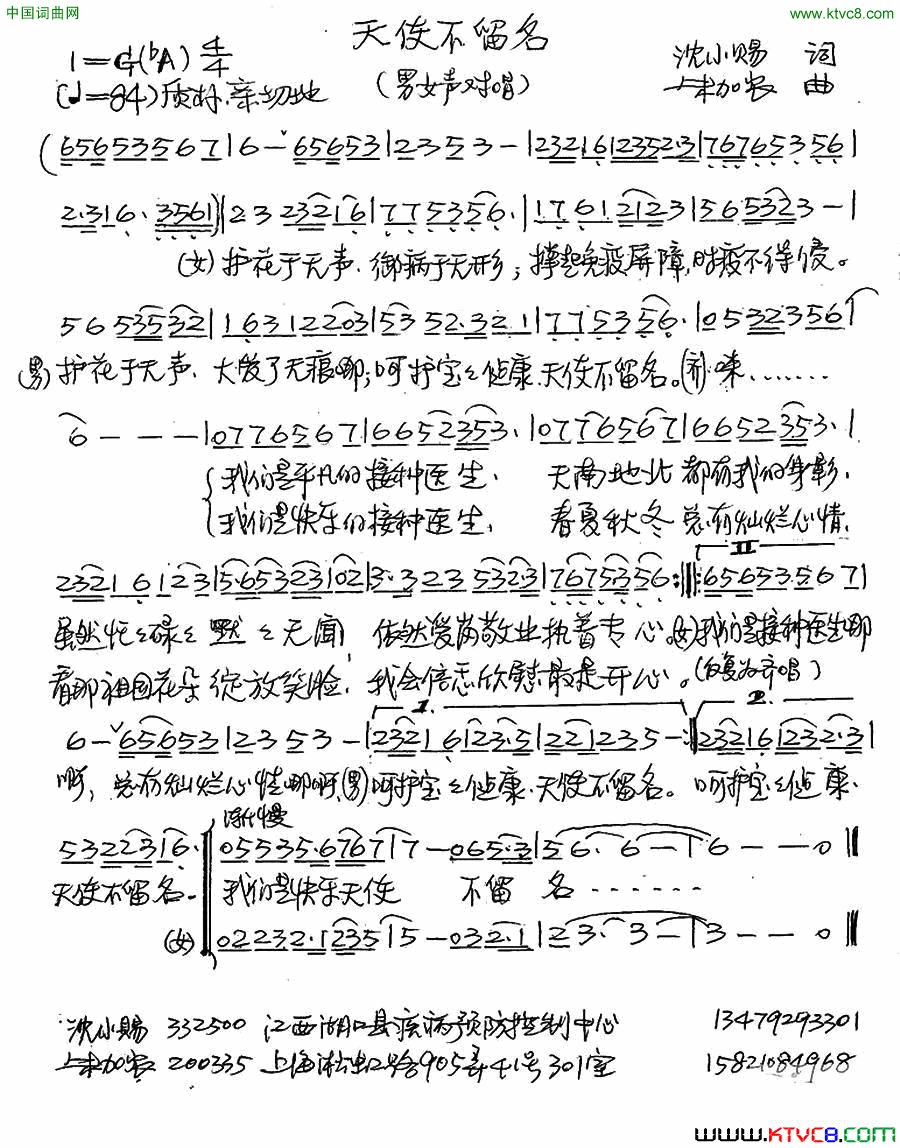 中国词曲网
www.ktvc8.com
天使不留名
1=G(♭A) 4/4
沈小赐 词
(♩=84)质朴.亲切地
(男女声对唱)
加农 曲
(65653567|6-ˇ65653|2353-|2321612352·3|767653 56|
2·316·3561)|23 23216|7753556·|1761 2123|56 5323-|
(女)护花于无声.御病于无形;撑起免疫屏障,时疫不得侵。
565 3532|16312203|5352·321|7753 56·|0532356|
(男)护花于无声、大爱了无痕哪;呵护宝々健康.天使不留名。(齐)咪.......
6---|0776567|6652353·|0776567|6652353·|
我们是平凡的接种医生、 天南地北都有我的身影、
我们是快乐的接种医生、 春夏秋冬总有灿烂心情、
II
23216123|5·6532302|3·3235323|7675356:||:65653·567|
虽然忙々碌々默々无闻, 依然爱岗敬业执着专心。(女)我们是接种医生哪
看那祖国花朵绽放笑脸, 我会倍忐欣慰最是开心。(反复为齐唱)
1. 2.
6-ˇ65653|2353-|2321623·5|221235-:||232161232·3|
啊,总有灿烂心情哪啊,(男)呵护宝々健康.天使不留名。呵护宝々健康.
渐慢
5322316·||05535·6767|7-065·3|56·6-|6--0||
天使不留名。我们是快乐天使 不留 名.......
(女)||02232·1235|5-032·1|23·3-|3--0||
沈小赐 332500 江西湖口县疾病预防控制中心 13479293301
加农 200335 上海淞虹路905弄41号301室 15821084968
www.KTVC8.com